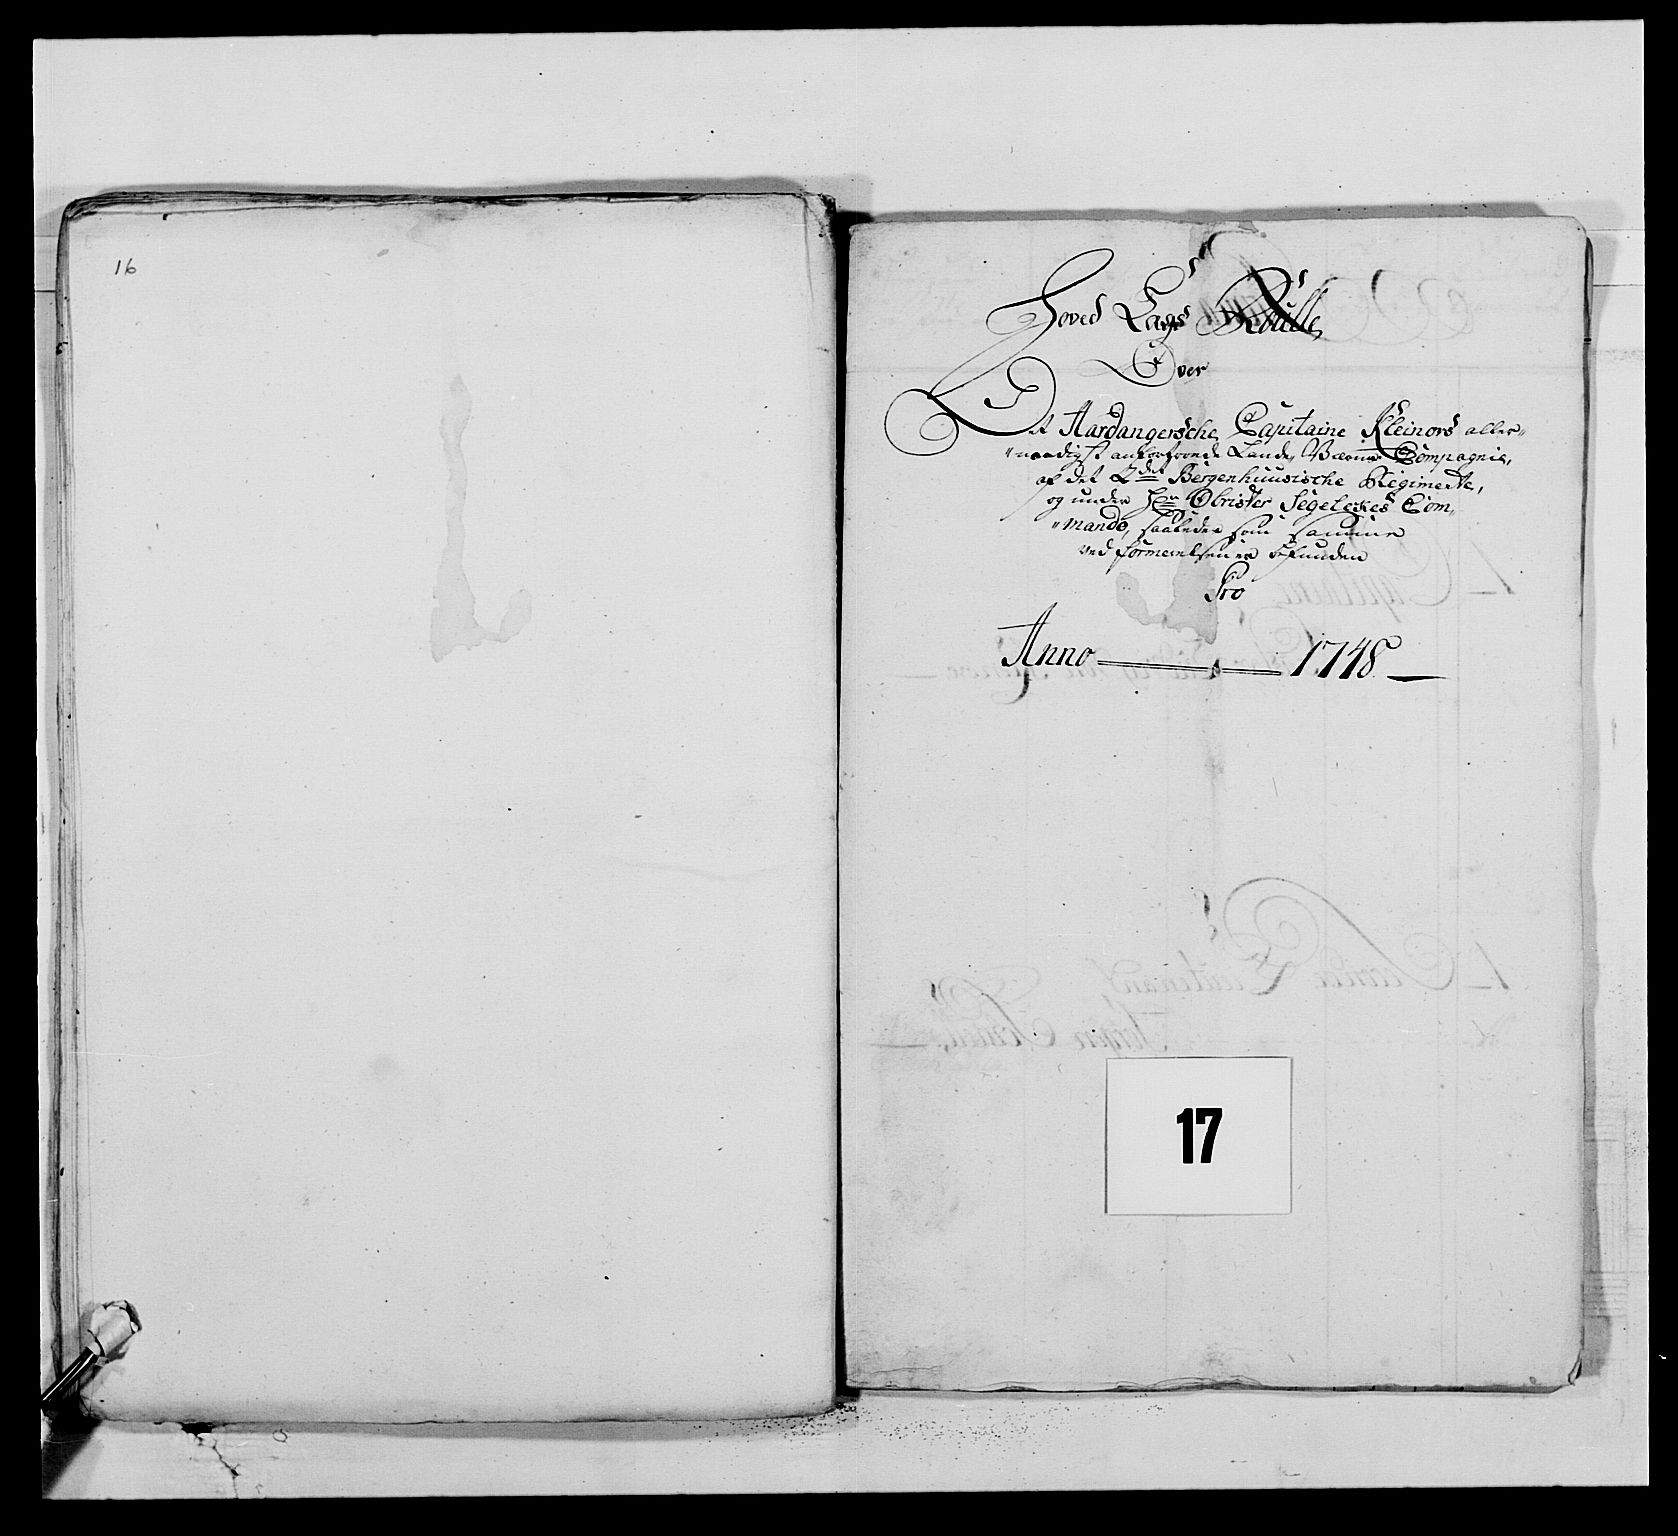 16
Hoved Lægs Roulle,
Over
Det Hardangersche Capitaine Kleinovs aller-
naadigst anfortroede Lande Værns Compagnie,
af det 2det Bergenhuusische Regimente,
og under Hr Obrister Segelckes Com-
"mando, saaledes som samme
ved Formerelsen er befunden
Pro
Anno 1748
17